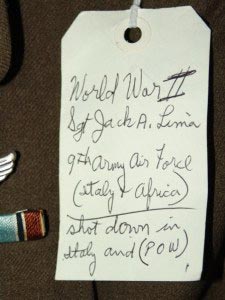 World War II
Sgt Jack A. Lima
9th Army Air Force
(Italy & Africa)
shot down in
Italy and (POW)